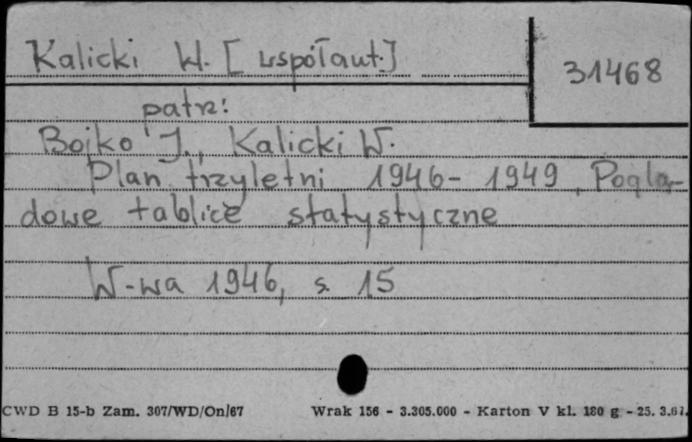 Kalicki W. [współaut.]
31468
patrz:
Bojko J., Kalicki W.
Plan trzyletni 1946-1949. Poglą-
dowe tablice statystyczne
W-wa 1946, s. 15
CWD B 15-b Zam. 307/WD/On/67 Wrak 156 - 3.305.000 - Karton V kl. 180 g - 25. 3.67.